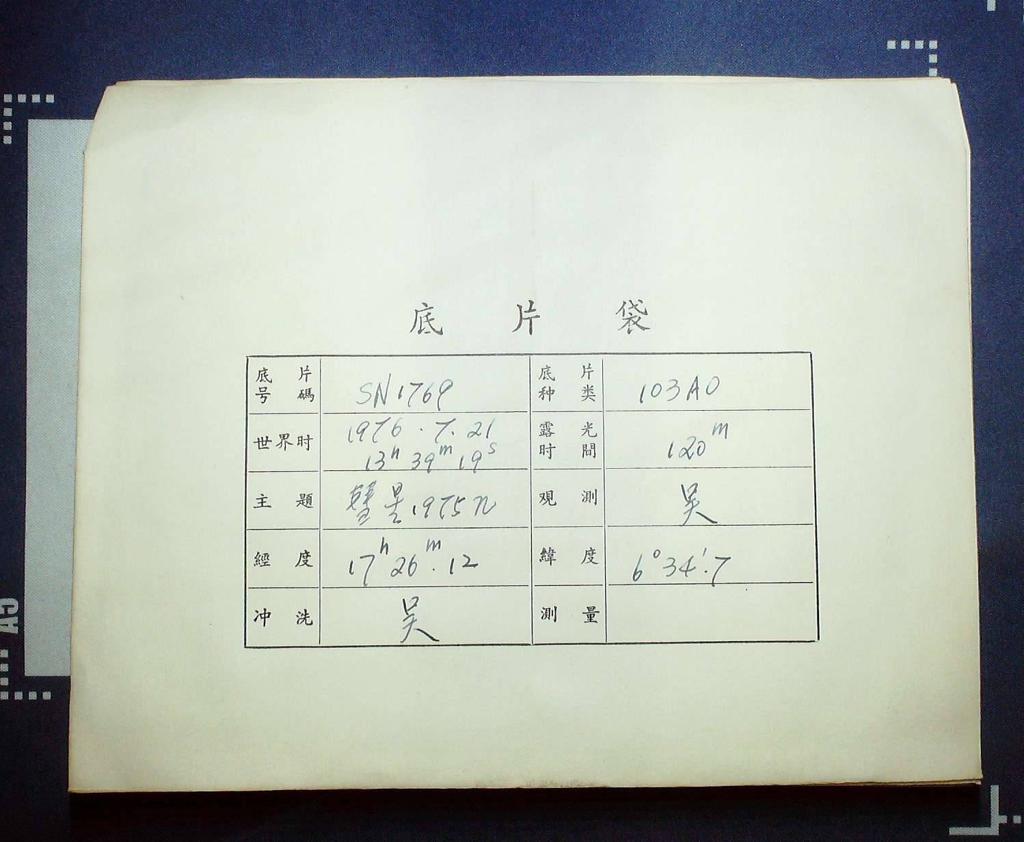 底片袋
底片号碼 SN1769 底片种类 103AO
世界时 1976.7.21 13h 39m 19s 露光时間 120m
主題 彗星1975n 观測 吴
經度 17h 26m.12 緯度 6°34'.7
冲洗 吴 測量
A3